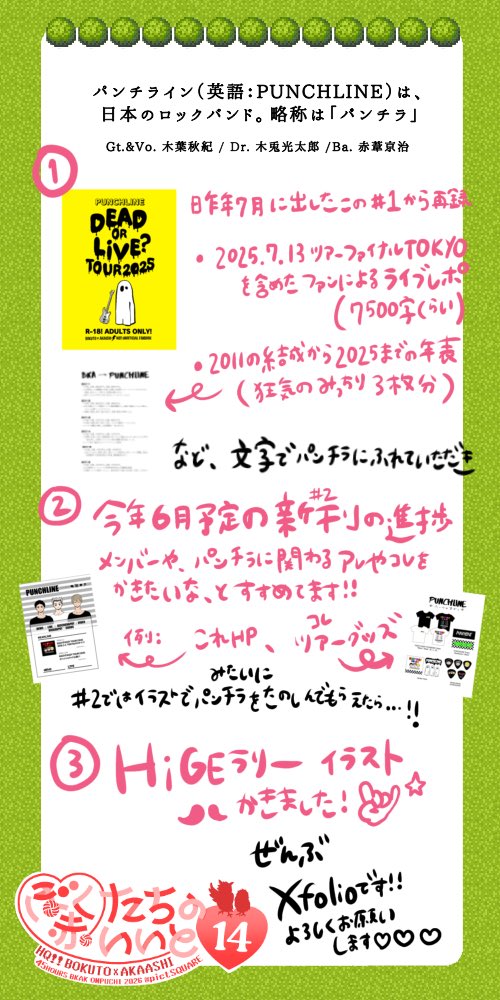 パンチライン（英語：PUNCHLINE）は、
日本のロックバンド。略称は「パンチラ」
Gt.&Vo. 木葉秋紀 / Dr. 木兎光太郎 /Ba. 赤葦京治
①
昨年7月に出したこの#1から再録
PUNCHLINE
DEAD
OR
LiVE?
TOUR2025
R-18! ADULTS ONLY!
・2025.7.13 ツアーファイナルTOKYO
を含めたファンによるライブレポ
(7500字くらい)
・2011の結成から2025までの年表
(狂気のみっちり3枚分)
BKA → PUNCHLINE
など、文字でパンチラにふれていただき
②
今年6月予定の新刊#2の進捗
メンバーや、パンチラに関わるアレやコレを
かきたいな、とすすめてます!!
PUNCHLINE
例: これHP、コレツアーグッズ
PUNCHLINE
みたいに
#2ではイラストでパンチラをたのしんでもらえたら...!!
③
HiGEラリー イラスト
かきました!
ぜんぶ
Xfolioです!!
よろしくお願い
します♡♡♡
たちの
いいと
14
HQ!! BOKUTO×AKAASHI
45HOURS BKAK ONPUCHI 2026 #pictSQUARE